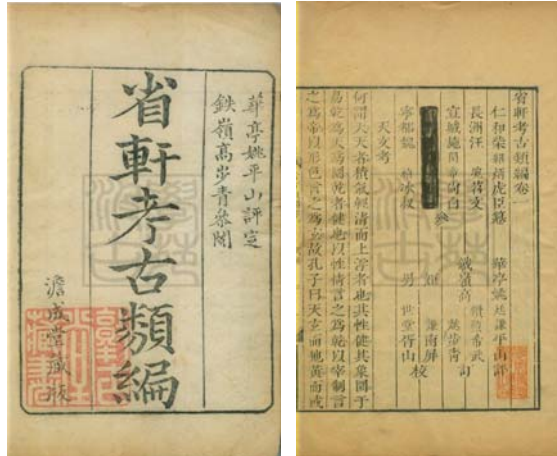 華亭姚平山評定
鉄嶺高步青參閱
省軒考古類編
澹成堂藏版
省軒考古類編卷一
仁和柴紹炳虎臣纂
華亭姚廷謙平山評
長洲汪
苕文
鐵嶺高
宣城施閏章尚白
越步青
訂
寧都魏
冰叔
男
世堂胥山
校
天文考
何謂天天者積氣輕清而上浮者也其性健其象圜于
易乾爲天爲圜乾者健也以性情言之爲乾以宰制言
之爲帝以形色言之爲玄故孔子曰天玄而地黃而或